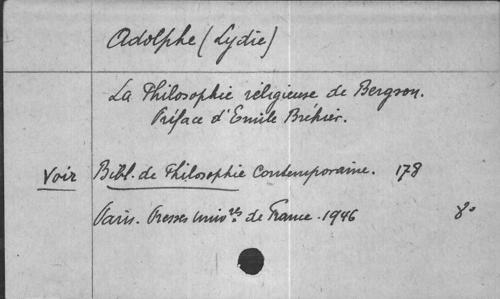 Adolphe (Lydie)
La Philosophie religieuse de Bergson.
Préface d'Emile Bréhier.
Voir Bibl. de Philosophie Contemporaine. 178
Paris. Presses Univ.res de France. 1946 8°